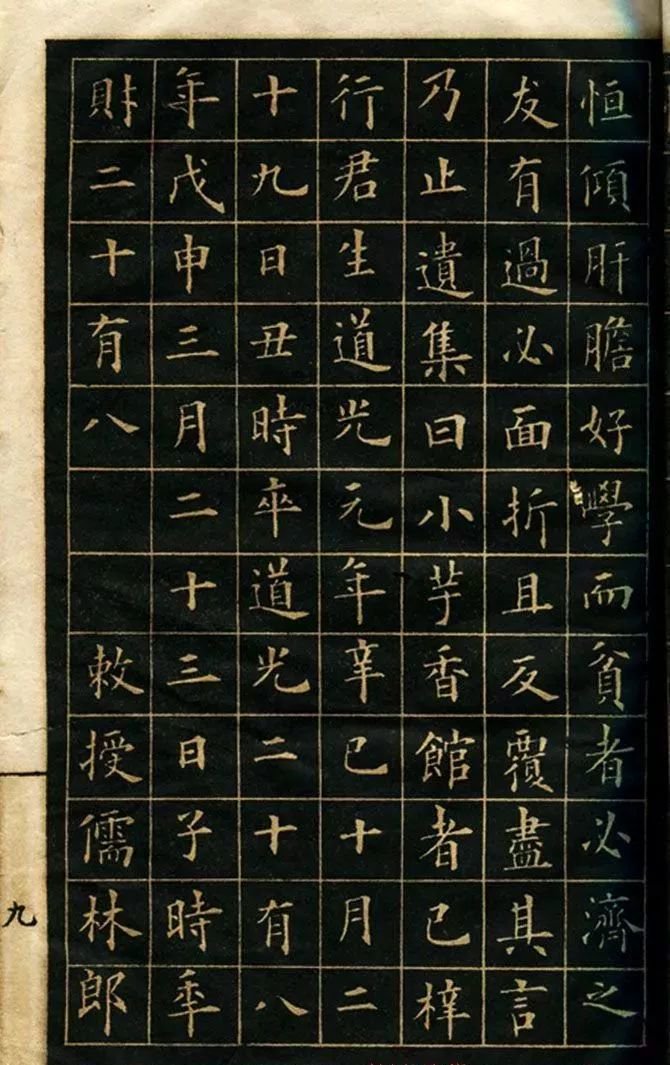 恒傾肝膽好學而貧者必濟之
友有過必面折且反覆盡其言
乃止遺集曰小芋香館者已梓
行君生道光元年辛巳十月二
十九日丑時卒道光二十有八
年戊申三月二十三日子時年
財二十有八　　敕授儒林郎
九